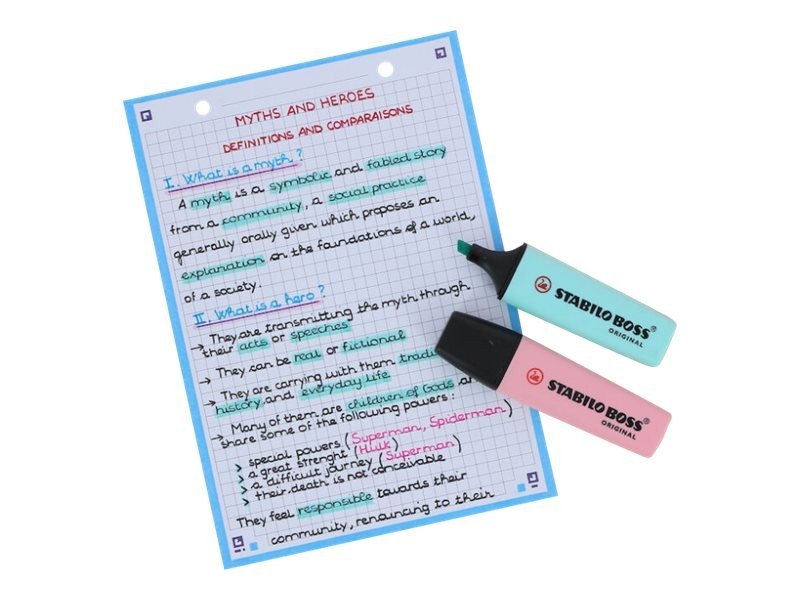 MYTHS AND HEROES
DEFINITIONS AND COMPARAISONS
I. What is a myth?
A myth is a symbolic and fabled story
from a community, a social practice
generally orally given which proposes an
explanation on the foundations of a world,
of a society.
II. What is a hero?
→ They are transmitting the myth through
their acts or speeches
→ They can be real or fictional
→ They are carrying with them tradi
history, and everyday life
→ Many of them are children of Gods an
share some of the following powers:
> special powers (Superman, Spiderman)
> a great strenght (Hulk)
> a difficult journey (Superman)
> their death is not conceivable
They feel responsible towards their
community, renouncing to their
STABILO BOSS®
ORIGINAL
STABILO BOSS®
ORIGINAL